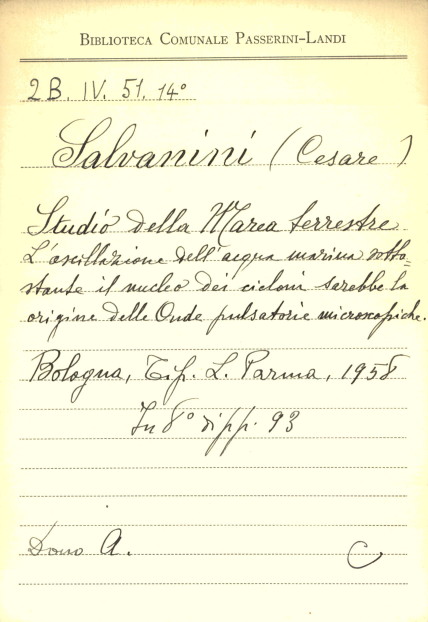 BIBLIOTECA COMUNALE PASSERINI-LANDI
2B. IV. 51. 14°
Salvanini (Cesare)
Studio della Marea terrestre
L'oscillazione dell'acqua marina sotto=
stante il nucleo dei cicloni sarebbe la
origine delle Onde pulsatorie microscopiche.
Bologna, Tip. L. Parma, 1958
In 8° di pp. 93
Dono A. C